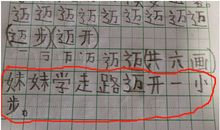 迈迈迈迈迈迈迈
迈迈迈迈迈迈迈
(迈步)(迈开)
一丆万万迈迈(共六画)
妹妹学走路迈开一小
步。